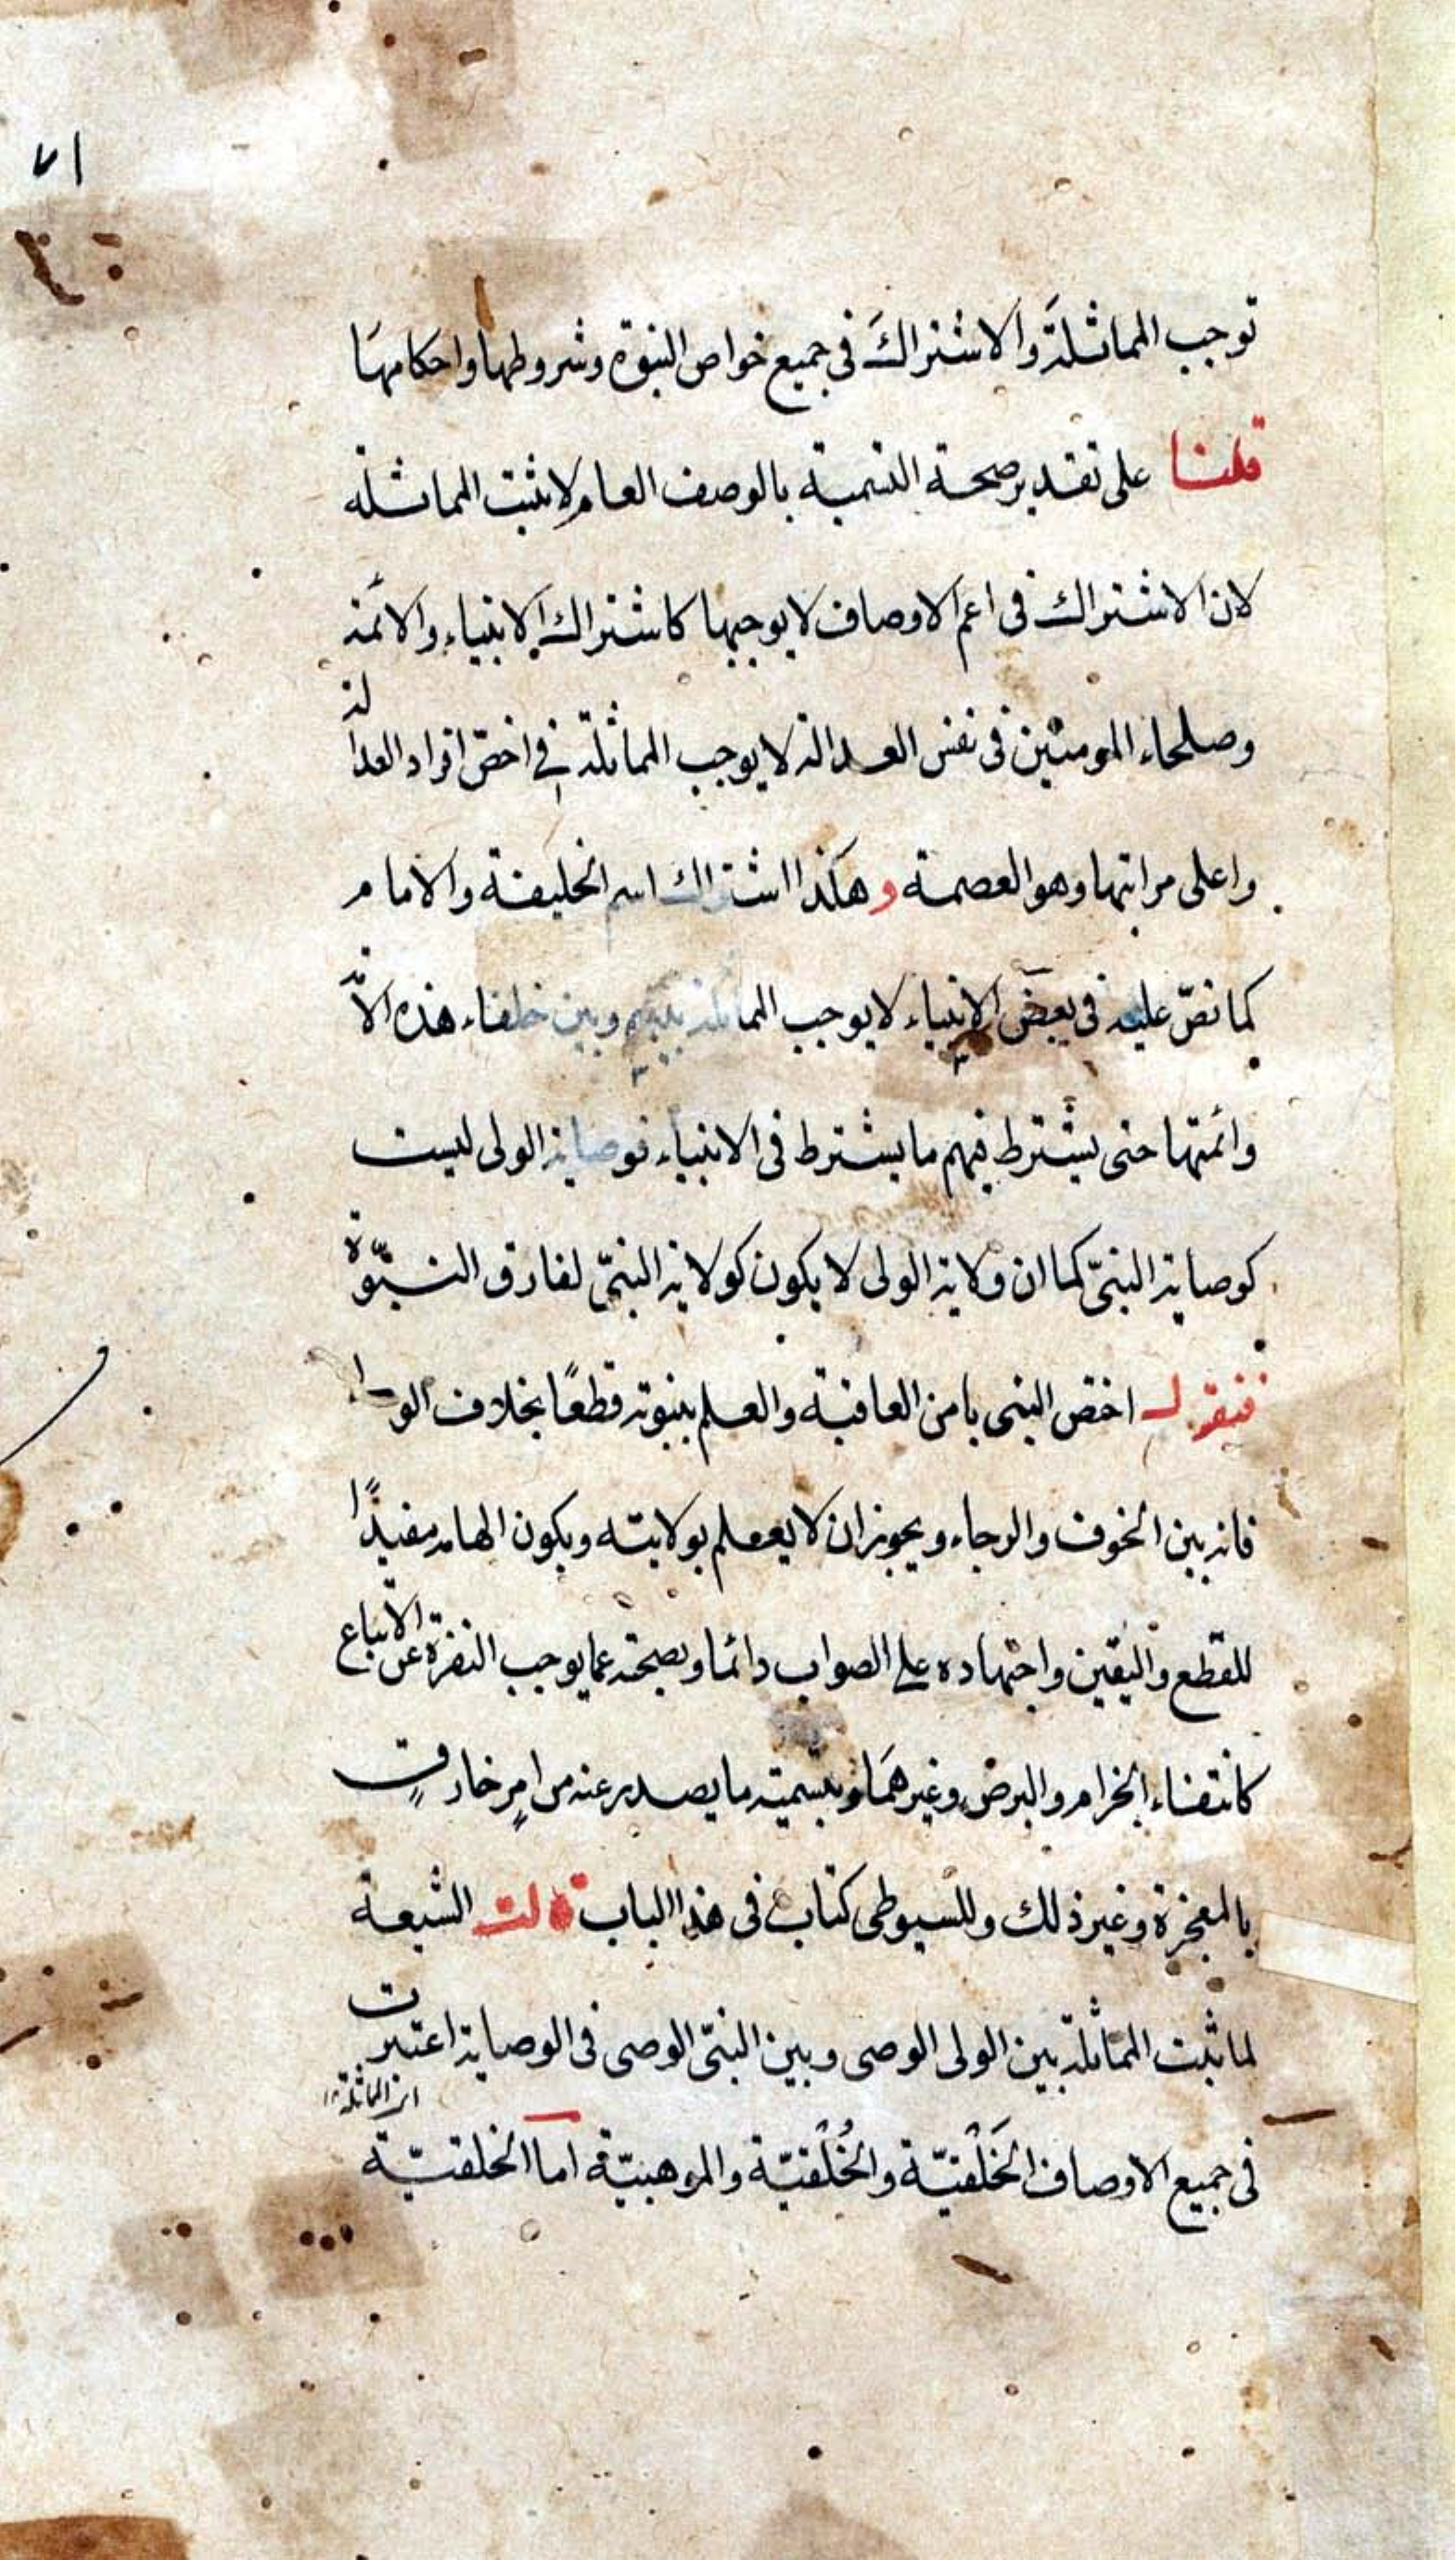 ٧١
توجب المماثلة والاشتراك فى جميع خواص النبوة وشروطها واحكامها
قلنا على تقدير صحة التسمية بالوصف العام لا يثبت المماثلة
لان الاشتراك فى اعم الاوصاف لا يوجبها كاشتراك الانبياء والائمة
وصلحاء المومنين فى نفس العدالة لا يوجب المماثلة فى اخصّ افراد العدالة
واعلى مراتبها وهو العصمة وهكذا اشتراك اسم الخليفة والامام
كما نصّ عليه فى بعض الانبياء لا يوجب المماثلة بينهم وبين خلفاء هذه الامّة
وائمتها حتى يشترط فيهم ما يشترط فى الانبياء فوصاية الولى ليست
كوصاية النبىّ كما ان ولاية الولى لا يكون كولاية النبىّ لفارق النبوّة
فنقول اختص النبى بامن العاقبة والعلم بنبوته قطعًا بخلاف الو
فانه بين الخوف والرجاء ويجوز ان لا يعلم بولايته ويكون الهامه مفيدًا
للقطع واليقين واجتهاده على الصواب دائما وبصحته عما يوجب النفرة عن الاتباع
كانتفاء الجزام والبرص وغيرهما وبتسمية ما يصدر عنه من امرٍ خارقٍ
بالمعجزة وغير ذلك وللسيوطى كتاب فى هذا الباب قالت الشيعة
لما ثبت المماثلة بين الولى الوصى وبين النبىّ الوصى فى الوصاية اعتبرت
المماثلة
فى جميع الاوصاف الخَلْقيّة والخُلْقيّة والموهبيّة اما الخلقيّة